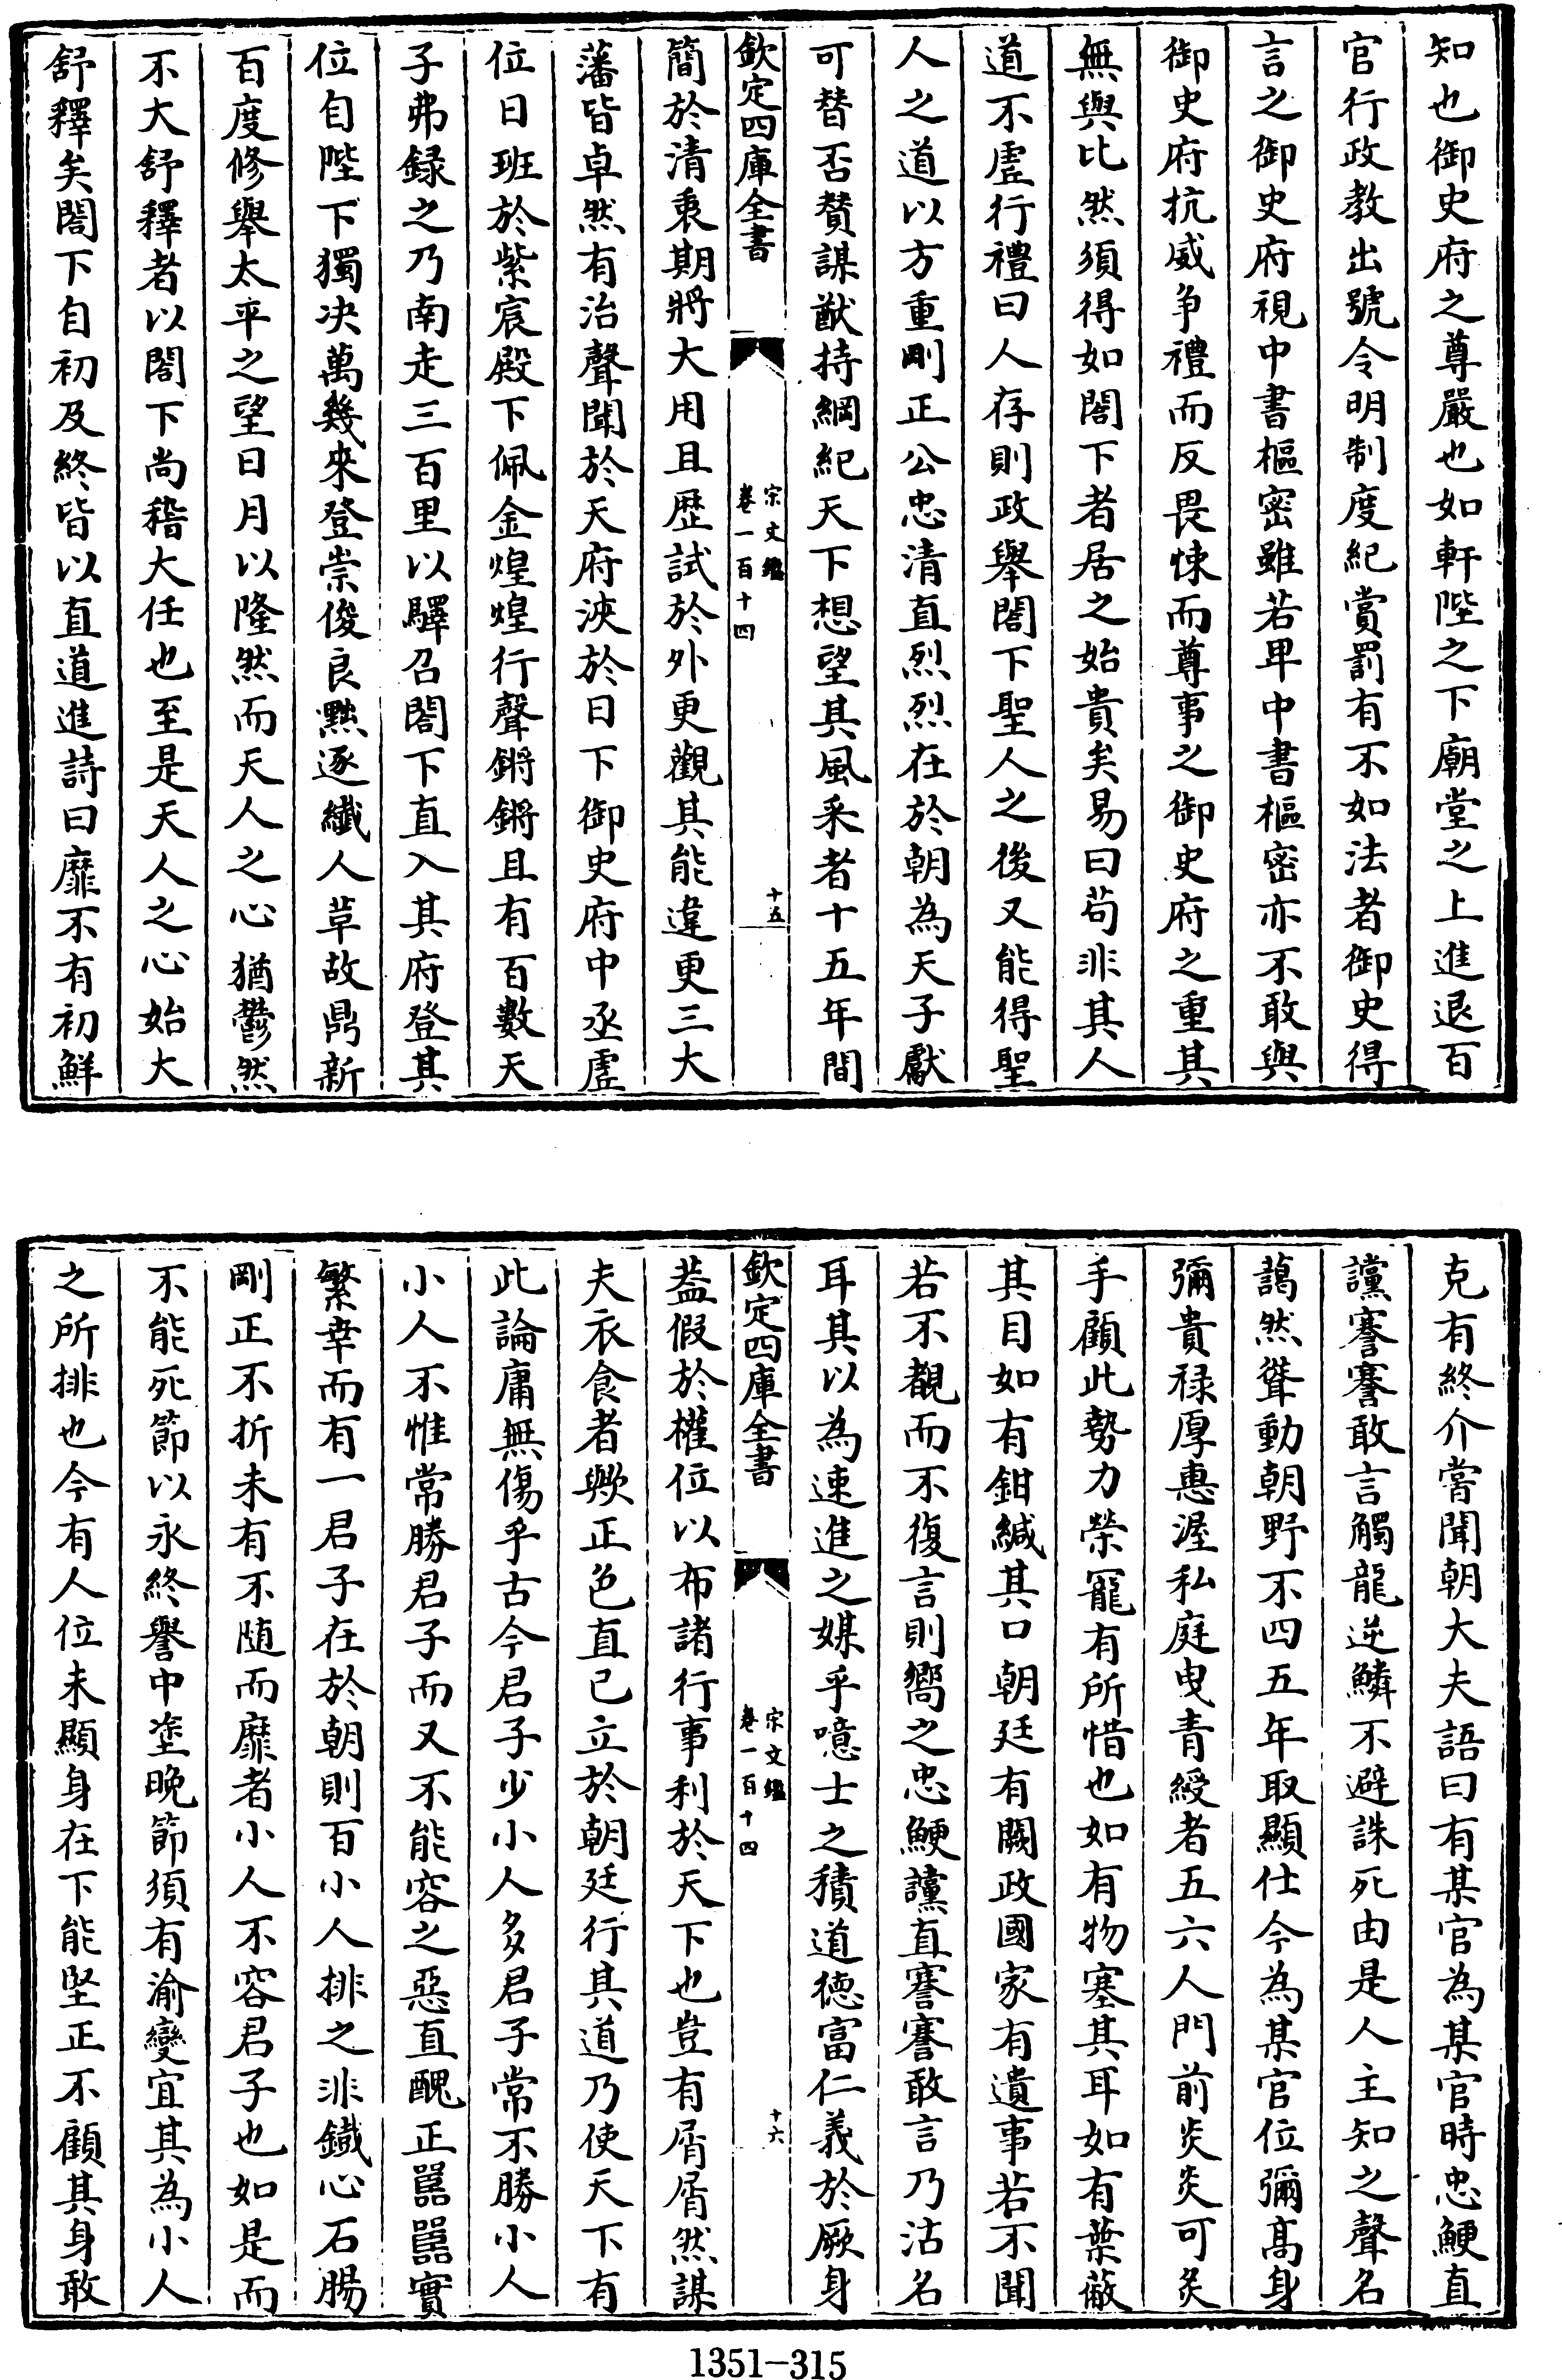 知也御史府之尊嚴也如軒陛之下廟堂之上進退百
官行政教出號令明制度紀賞罰有不如法者御史得
言之御史府視中書樞密雖若卑中書樞密亦不敢與
御史府抗威争禮而反畏悚而尊事之御史府之重其
無與比然須得如閤下者居之始貴矣易曰苟非其人
道不虛行禮曰人存則政舉閤下聖人之後又能得聖
人之道以方重剛正公忠清直烈烈在於朝為天子獻
可替否賛謀猷持綱紀天下想望其風采者十五年間
欽定四庫全書
宋文鑑
卷一百十四
十五
簡於清衷期將大用且歴試於外更觀其能違更三大
藩皆卓然有治聲聞於天府浹於日下御史府中丞虛
位日班於紫宸殿下佩金煌煌行聲鏘鏘且有百數天
子弗録之乃南走三百里以驛召閤下直入其府登其
位自陛下獨决萬幾來登崇俊良黜逐纎人草故鼎新
百度修舉太平之望日月以隆然而天人之心猶鬱然
不大舒釋者以閤下尚稽大任也至是天人之心始大
舒釋矣閤下自初及終皆以直道進詩曰靡不有初鮮
克有終介嘗聞朝大夫語曰有某官為某官時忠鯁直
讜謇謇敢言觸龍逆鱗不避誅死由是人主知之聲名
藹然聳動朝野不四五年取顯仕今為某官位彌髙身
彌貴禄厚惠渥私庭曳青綬者五六人門前炎炎可炙
手顧此勢力榮寵有所惜也如有物塞其耳如有葉蔽
其目如有鉗緘其口朝廷有闕政國家有遺事若不聞
若不覩而不復言則嚮之忠鯁讜直謇謇敢言乃沽名
耳其以為速進之媒乎噫士之積道德富仁義於厥身
欽定四庫全書
宋文鑑
卷一百十四
十六
葢假於權位以布諸行事利於天下也豈有屑屑然謀
夫衣食者歟正色直已立於朝廷行其道乃使天下有
此論庸無傷乎古今君子少小人多君子常不勝小人
小人不惟常勝君子而又不能容之惡直醜正嚚嚚實
繁幸而有一君子在於朝則百小人排之非鐡心石腸
剛正不折未有不随而靡者小人不容君子也如是而
不能死節以永終譽中塗晚節須有渝變宜其為小人
之所排也今有人位未顯身在下能堅正不顧其身敢
1351-315